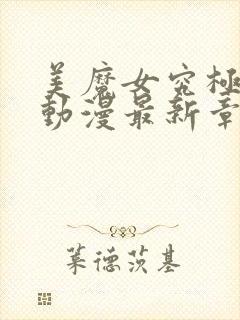 美魔女究極
動漫最新章
葉德茨基